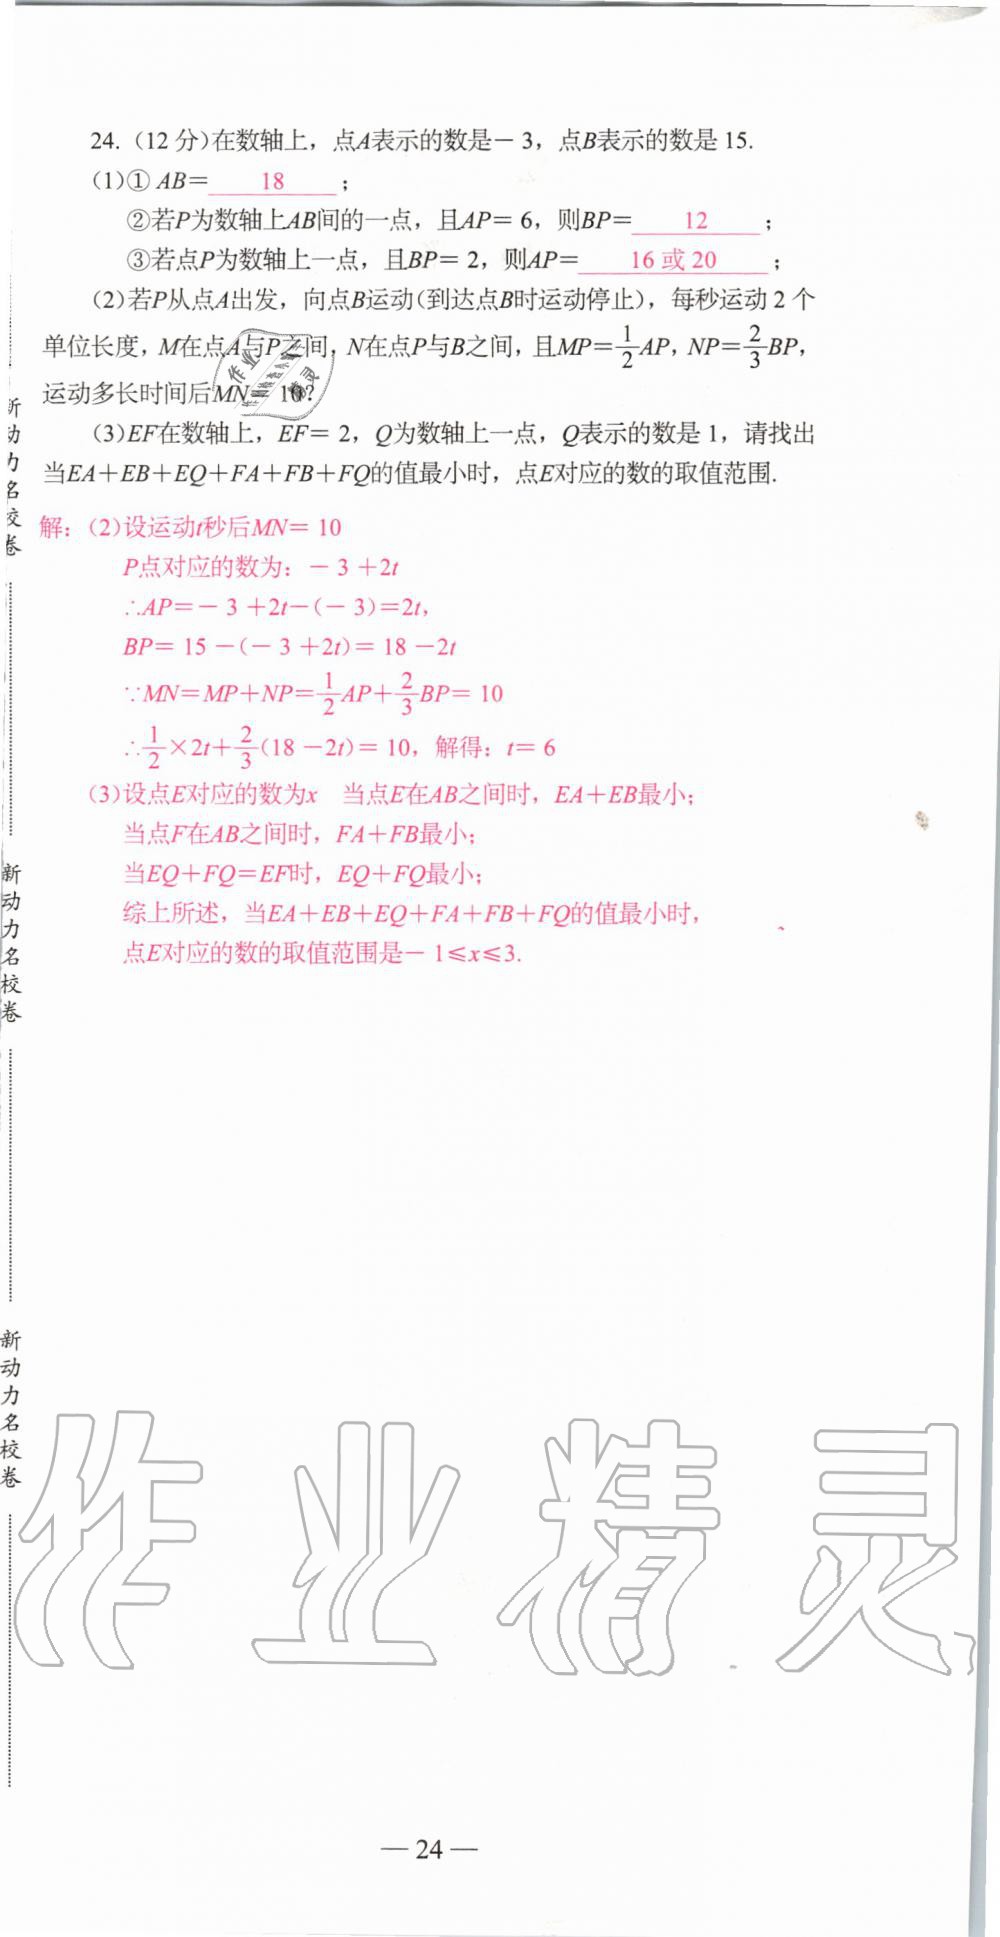 24.(12分)在数轴上，点A表示的数是－3，点B表示的数是15.
(1)① AB＝ 18 ；
②若P为数轴上AB间的一点，且AP＝6，则BP＝ 12 ；
③若点P为数轴上一点，且BP＝2，则AP＝ 16或20 ；
(2)若P从点A出发，向点B运动(到达点B时运动停止)，每秒运动2个
单位长度，M在点A与P之间，N在点P与B之间，且MP＝1/2AP，NP＝2/3BP，
运动多长时间后MN＝10?
(3)EF在数轴上，EF＝2，Q为数轴上一点，Q表示的数是1，请找出
当EA＋EB＋EQ＋FA＋FB＋FQ的值最小时，点E对应的数的取值范围.
解：(2)设运动t秒后MN＝10
P点对应的数为：－3＋2t
∴AP＝－3＋2t－(－3)＝2t，
BP＝15－(－3＋2t)＝18－2t
∵MN＝MP＋NP＝1/2AP＋2/3BP＝10
∴1/2×2t＋2/3(18－2t)＝10，解得：t＝6
(3)设点E对应的数为x 当点E在AB之间时，EA＋EB最小；
当点F在AB之间时，FA＋FB最小；
当EQ＋FQ＝EF时，EQ＋FQ最小；
综上所述，当EA＋EB＋EQ＋FA＋FB＋FQ的值最小时，
点E对应的数的取值范围是－1≤x≤3.
新动力名校卷
新动力名校卷
新动力名校卷
作业精灵
— 24 —